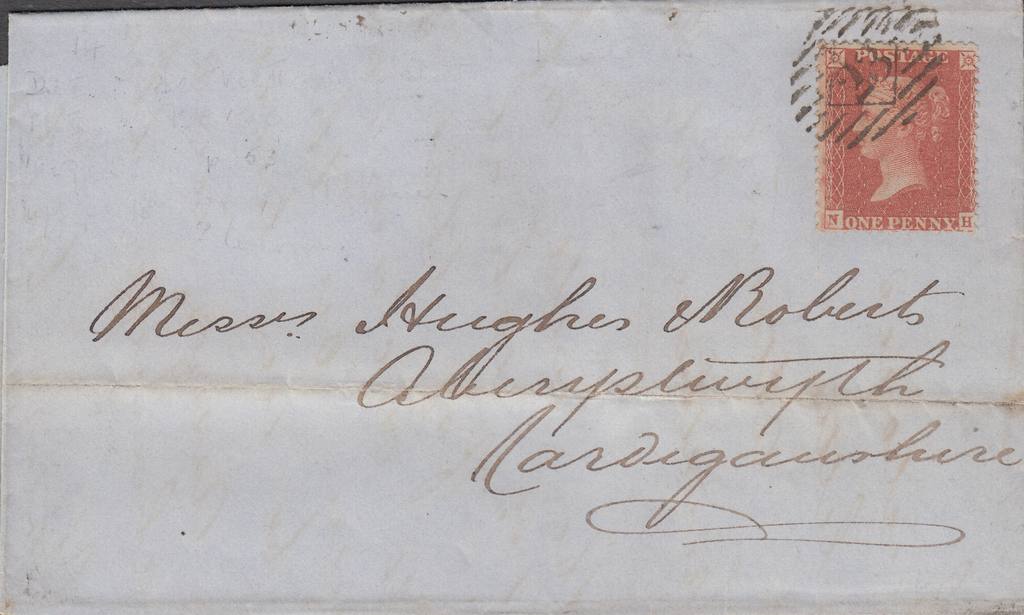 POSTAGE
N ONE PENNY. H
Messrs Hughes & Roberts
Aberystwyth
Cardiganshire